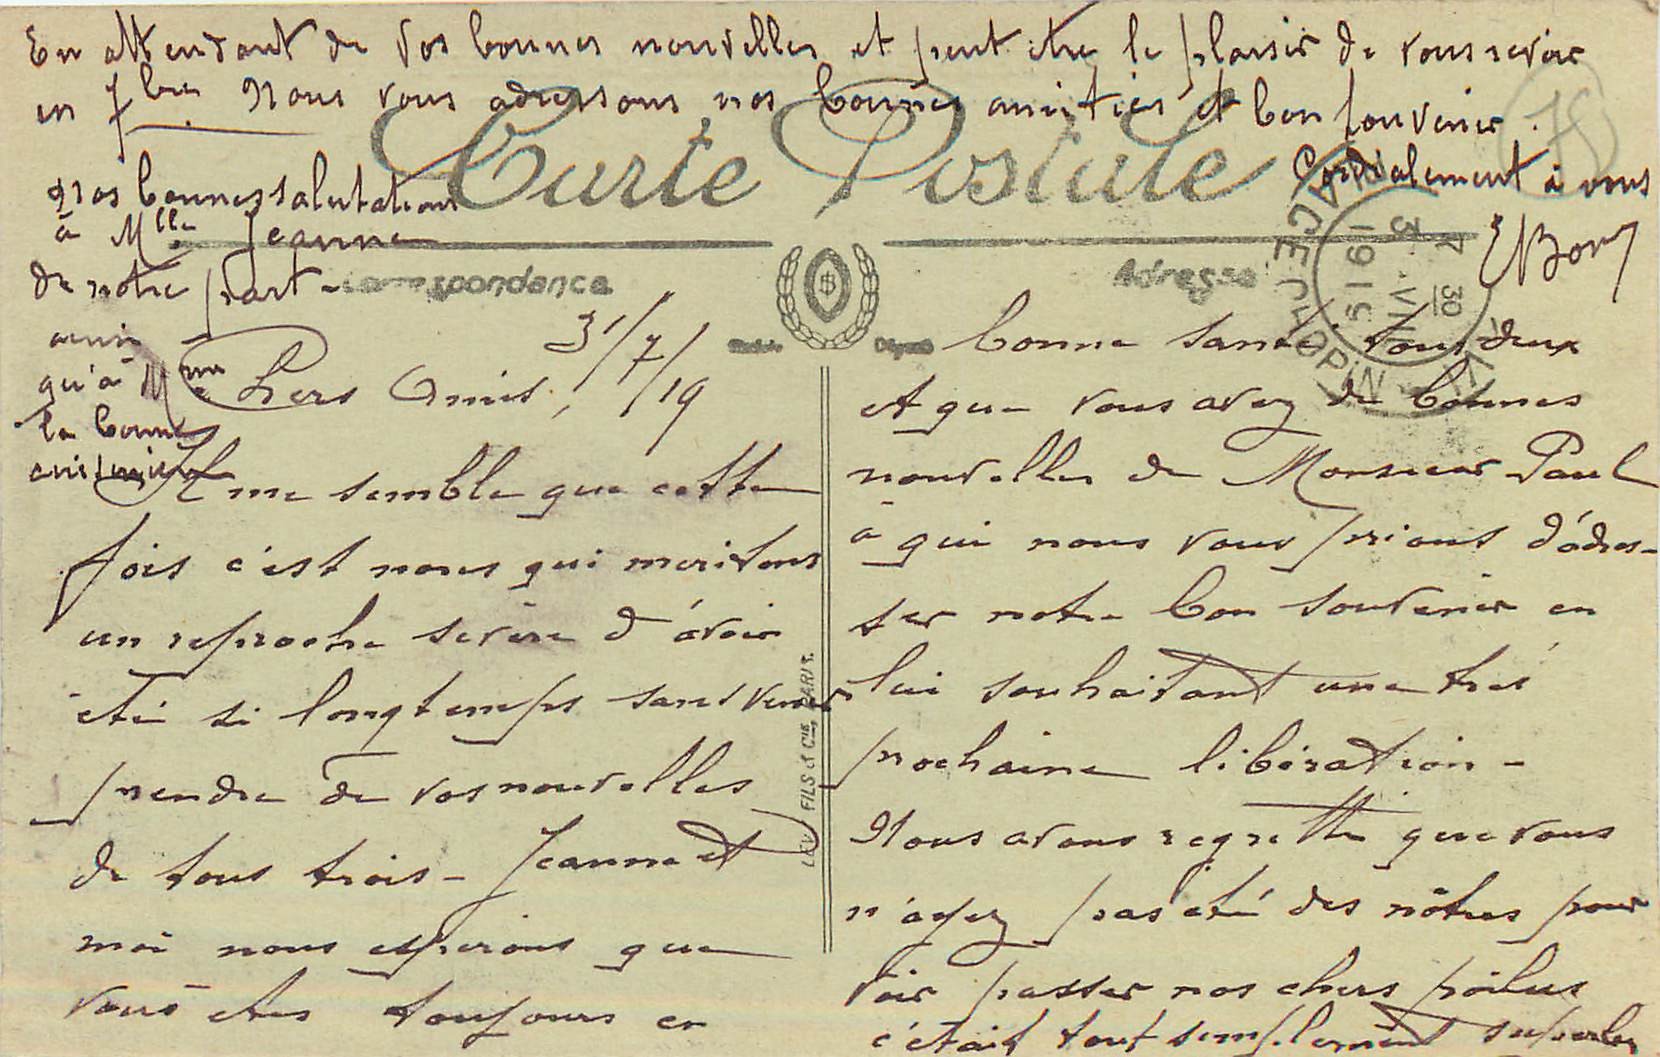 En attendant de vos bonnes nouvelles et peut être le plaisir de vous revoir
en 7bre. Nous vous adressons nos bonnes amitiés et bon souvenir.
Cordialement à vous
Nos bonnes salutations
à Mlle Jeanne
de notre part -
ainsi
qu'à Mme
la bonne
cuisinière
Carte Postale
Correspondance
Adresse
78
7 30
3 - VII
1919
31/7/19
Chers Amis,
Il me semble que cette
fois c'est nous qui meritons
un reproche sevère d'avoir
été si longtemps sans venir
prendre de vos nouvelles
de tous trois - Jeanne et
moi nous esperons que
vous êtes toujours en
bonne santé tous deux
et que vous avez de bonnes
nouvelles de Monsieur Paul
à qui nous vous prions d'adres-
ser notre bon souvenir en
lui souhaitant une très
prochaine libération -
Nous avons regretté que vous
n'ayez pas été des nôtres pour
voir passer nos chers poilus
c'était tout simplement superbe
LEVY FILS & CIE, PARIS.